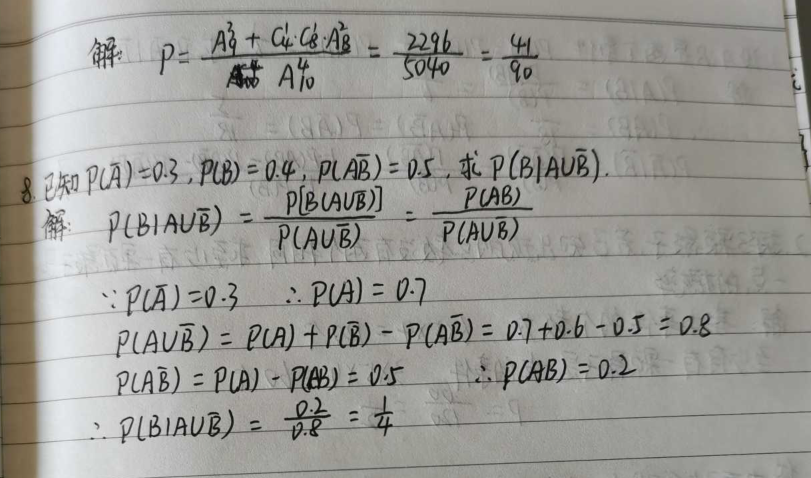 解: P = (A₉³ + C₄¹·C₈¹·A₈²) / A₁₀⁴ = 2296/5040 = 41/90
8. 已知 P(Ā)=0.3, P(B)=0.4, P(AB̄)=0.5, 求 P(B|A∪B̄).
解: P(B|A∪B̄) = P[B(A∪B̄)] / P(A∪B̄) = P(AB) / P(A∪B̄)
∵ P(Ā)=0.3 ∴ P(A)=0.7
P(A∪B̄) = P(A)+P(B̄)-P(AB̄) = 0.7+0.6-0.5=0.8
P(AB̄) = P(A)-P(AB)=0.5 ∴ P(AB)=0.2
∴ P(B|A∪B̄) = 0.2/0.8 = 1/4